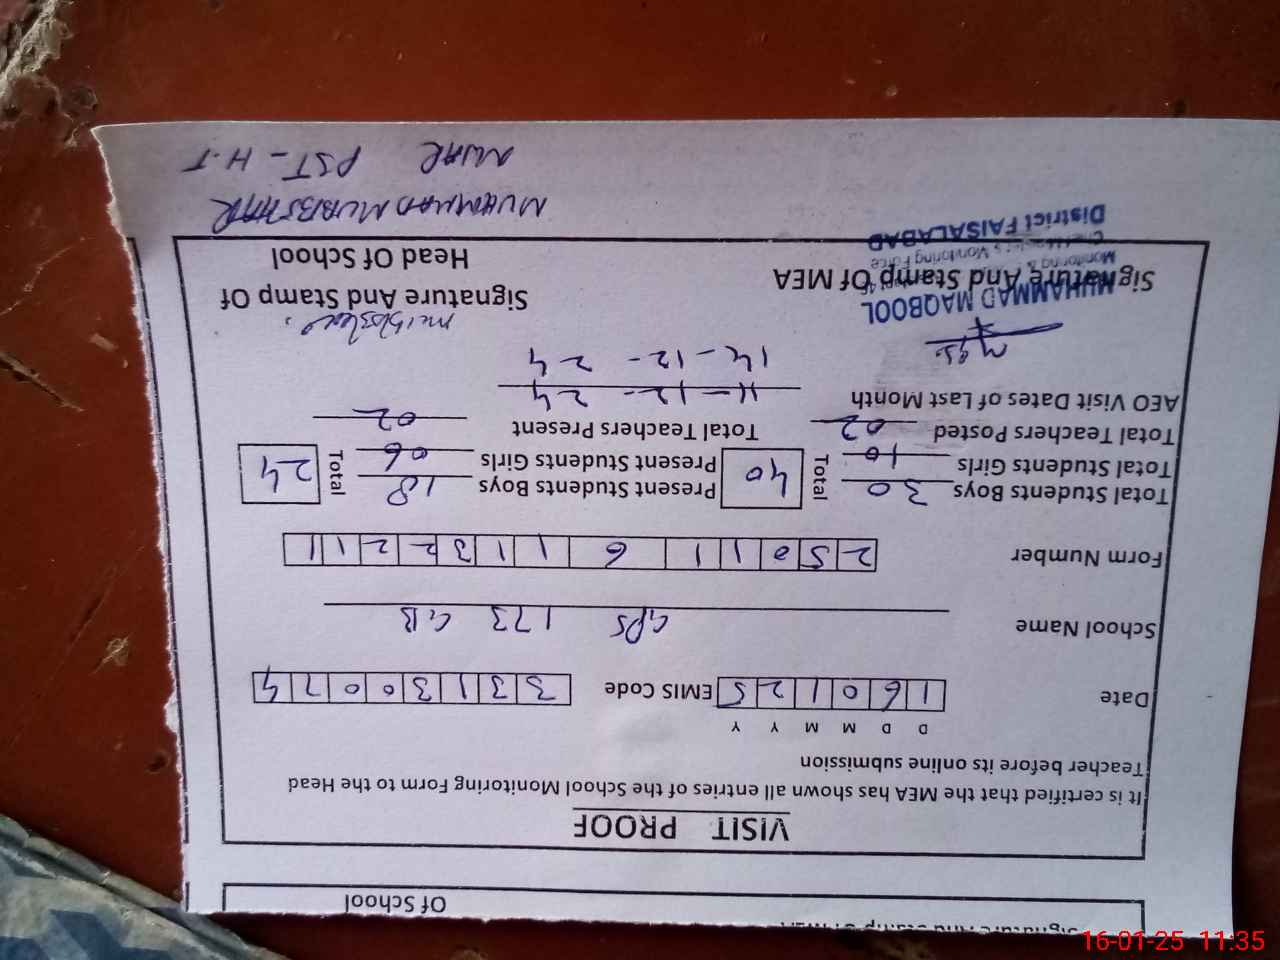 Signature And Stamp Of MEA
Of School
VISIT PROOF
It is certified that the MEA has shown all entries of the School Monitoring Form to the Head
Teacher before its online submission
D D M M Y Y
Date 1 6 0 1 2 5 EMIS Code 3 3 1 3 0 0 7 4
School Name GPS 173 GB
Form Number 2 5 0 1 1 6 1 1 3 2 2 1 1
Total Students Boys 30 Total 40 Present Students Boys 18 Total 24
Total Students Girls 10 Present Students Girls 06
Total Teachers Posted 02 Total Teachers Present 02
AEO Visit Dates of Last Month 11-12-24
14-12-24
MUHAMMAD MAQBOOL
Signature And Stamp Of MEA Signature And Stamp Of
Head Of School
Monitoring &
Monitoring Force
District FAISALABAD
MUHAMMAD MUBBSHAR
PST - H.T
16-01-25 11:35